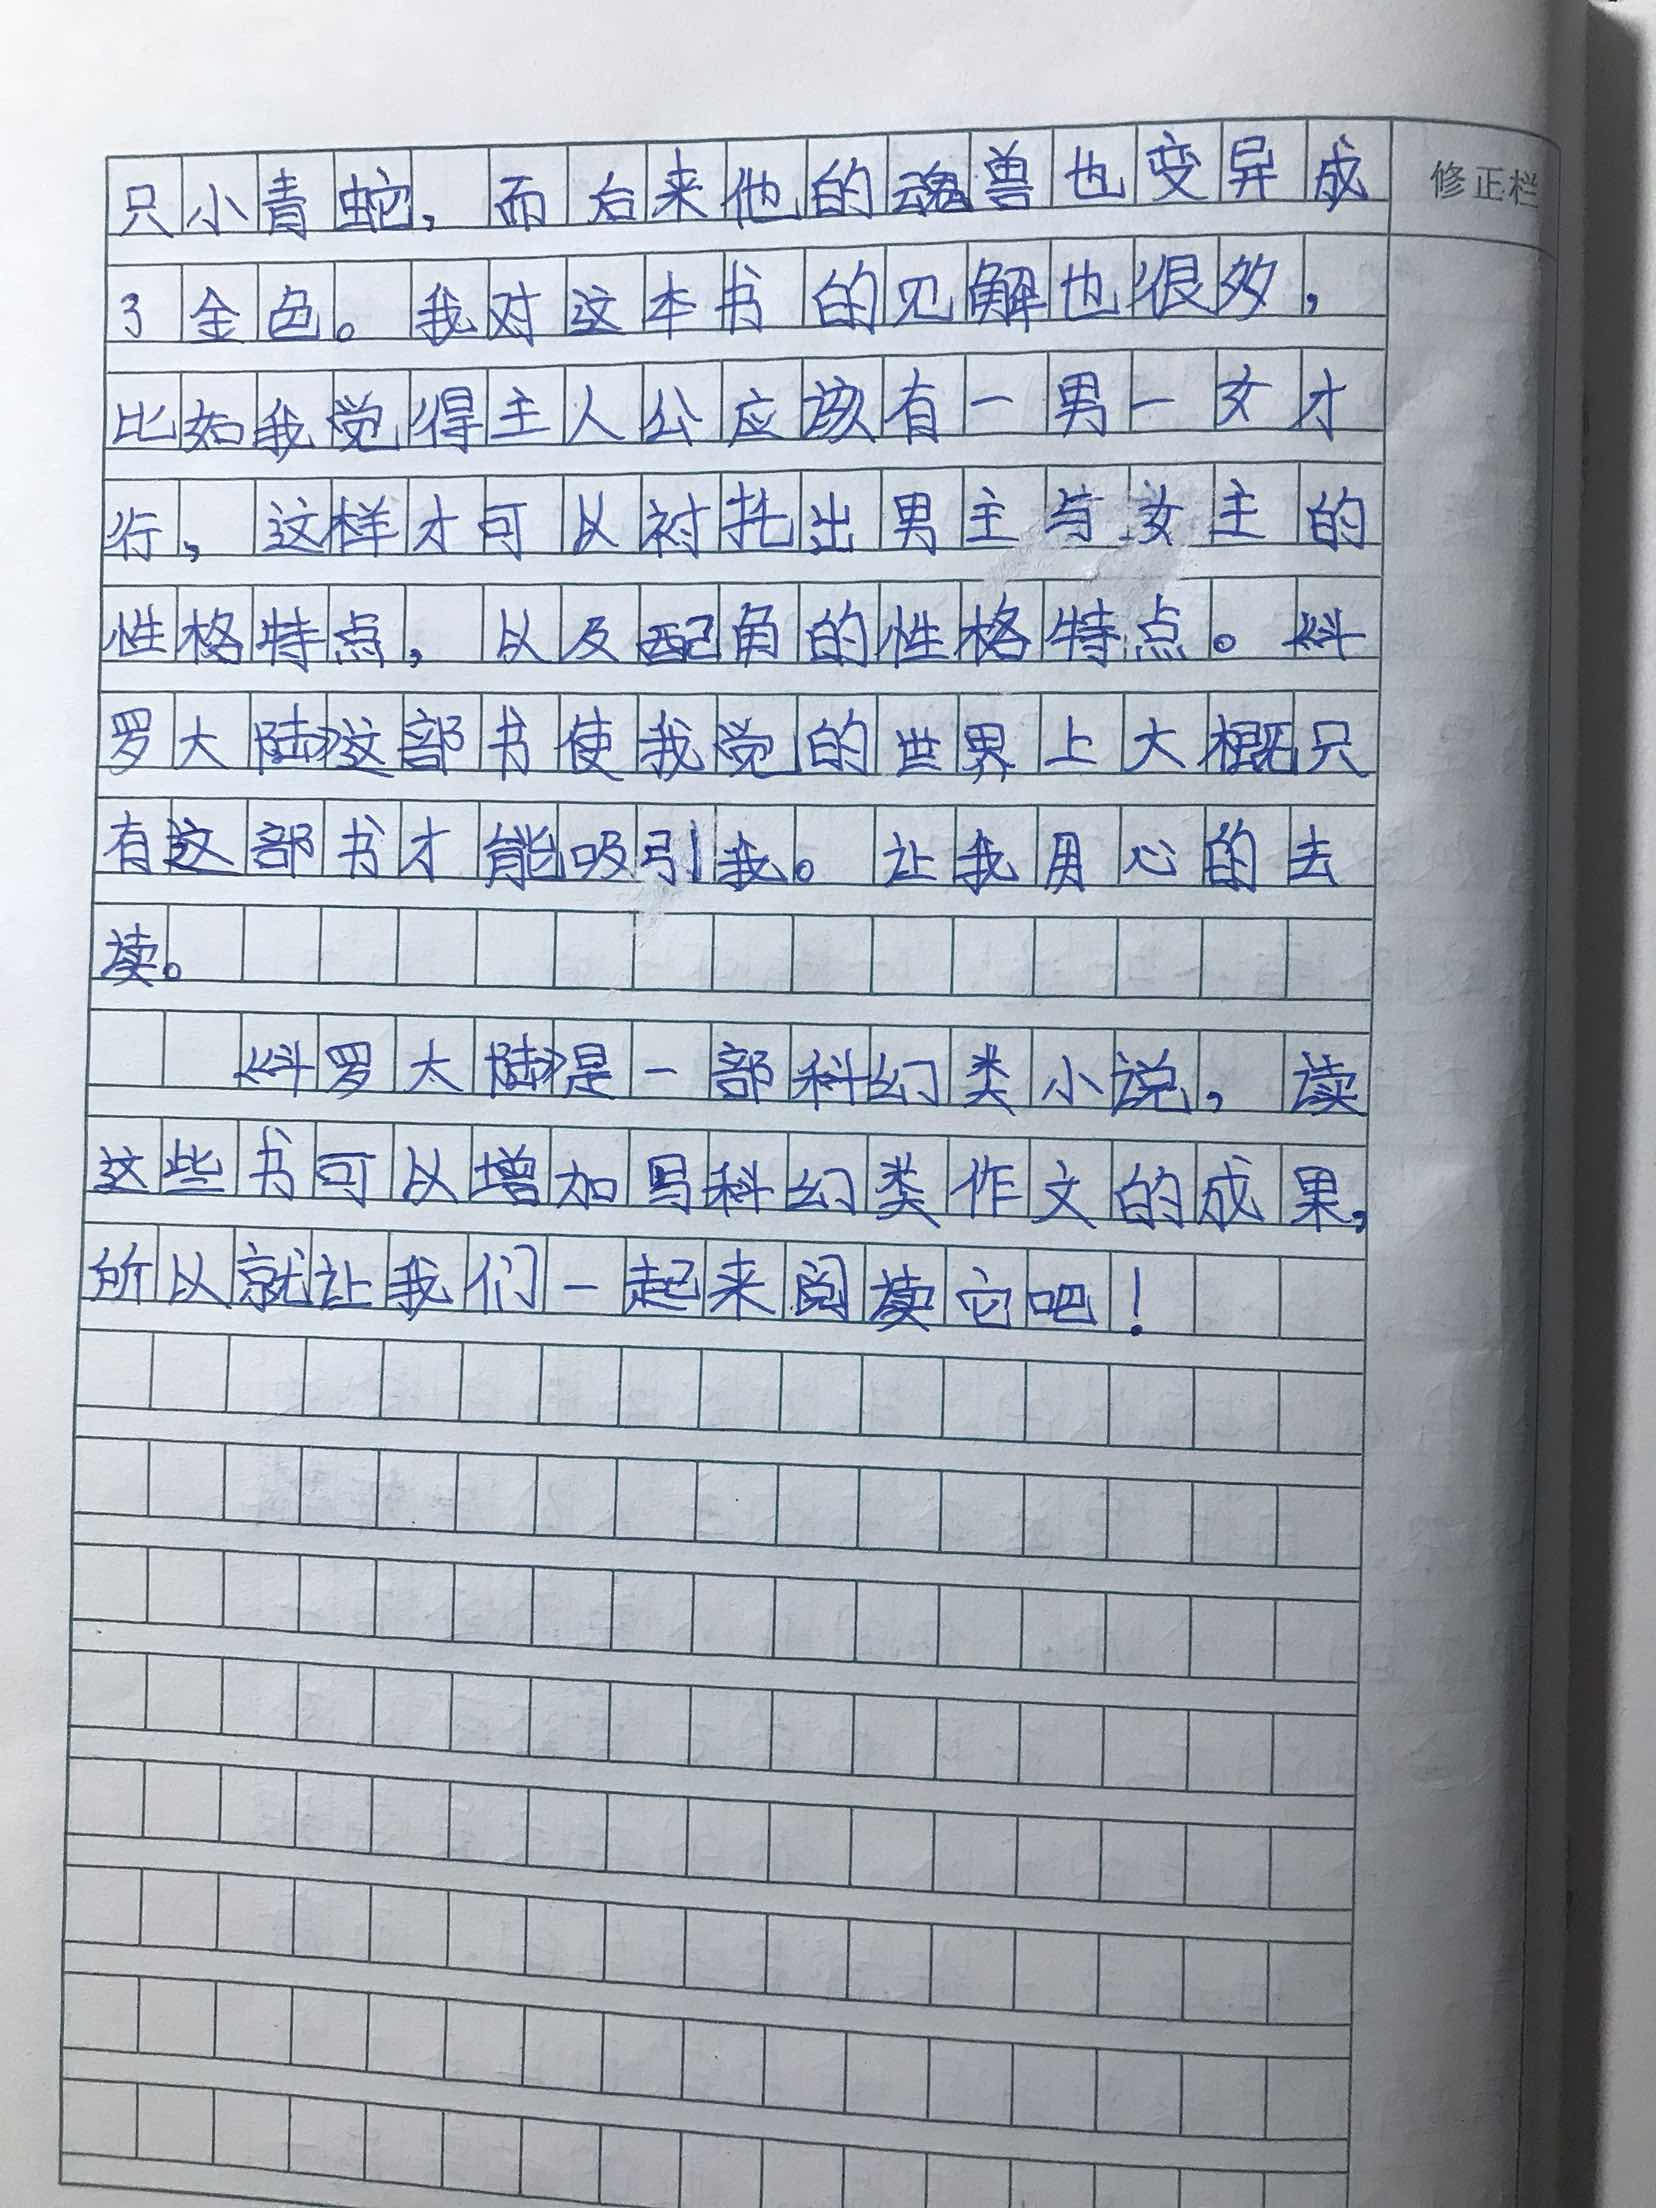 只小青蛇，而后来他的魂兽也变异成
修正栏
了金色。我对这本书的见解也很多，
比如我觉得主人公应该有一男一女才
行，这样才可以衬托出男主与女主的
性格特点，以及配角的性格特点。《斗
罗大陆》这部书使我觉的世界上大概只
有这部书才能吸引我。让我用心的去
读。
《斗罗大陆》是一部科幻类小说，读
这些书可以增加写科幻类作文的成果，
所以就让我们一起来阅读它吧！